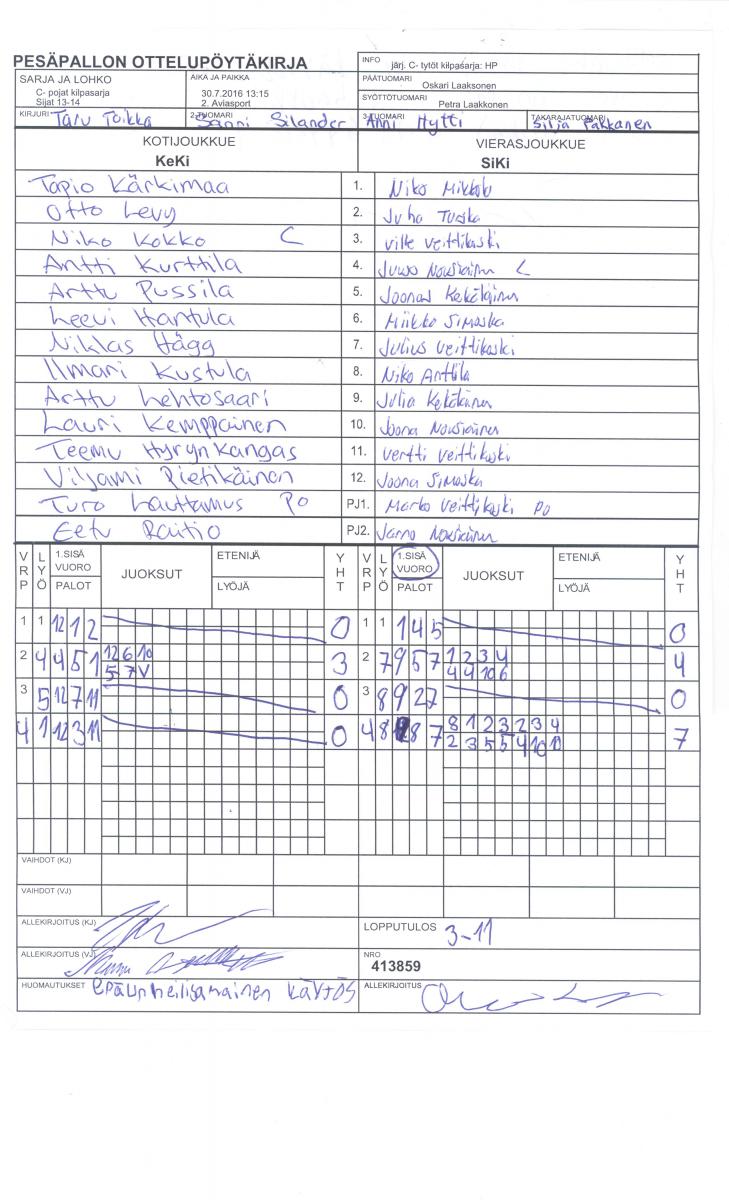 PESÄPALLON OTTELUPÖYTÄKIRJA
INFO järj. C- tytöt kilpasarja: HP
SARJA JA LOHKO
C- pojat kilpasarja
Sijat 13-14
AIKA JA PAIKKA
30.7.2016 13:15
2. Aviasport
PÄÄTUOMARI
Oskari Laaksonen
SYÖTTÖTUOMARI
Petra Laakkonen
KIRJURI Taru Toikka
2-TUOMARI Sanni Silander
3-TUOMARI Anni Hytti
TAKARAJATUOMARI Silja Pakkanen
KOTIJOUKKUE
KeKi
VIERASJOUKKUE
SiKi
Tapio Kärkimaa 1. Niko Mikkola
Otto Levy 2. Juho Turska
Niko Kokko C 3. Ville Veittikoski
Antti Kurttila 4. Juuso Nousiainen C
Arttu Pussila 5. Joonas Kekäläinen
Leevi Hantula 6. Miikko Simoska
Niklas Hägg 7. Julius Veittikoski
Ilmari Kustula 8. Niko Anttila
Arttu Lehtosaari 9. Julia Kekäläinen
Lauri Kemppainen 10. Joona Nousiainen
Teemu Hyrynkangas 11. Vertti Veittikoski
Viljami Pietikäinen 12. Joona Simoska
Turo Lauttamus PO PJ1. Marko Veittikoski PO
Eetu Raitio PJ2. Jarno Nousiainen
VRP LYÖ 1.SISÄ VUORO PALOT JUOKSUT ETENIJÄ LYÖJÄ YHT VRP LYÖ 1.SISÄ VUORO PALOT JUOKSUT ETENIJÄ LYÖJÄ YHT
1 1 12 1 2 0 1 1 1 4 5 0
2 4 4 5 1 12 6 10 3 2 7 9 5 7 1 2 3 4 4
5 7 V 4 4 10 6
3 5 12 7 11 0 3 8 9 2 7 0
4 1 12 3 11 0 4 8 8 7 8 1 2 3 2 3 4 7
2 3 5 5 4 10 11
VAIHDOT (KJ)
VAIHDOT (VJ)
ALLEKIRJOITUS (KJ)
LOPPUTULOS 3-11
ALLEKIRJOITUS (VJ)
NRO
413859
HUOMAUTUKSET epäurheilijamainen käytös
ALLEKIRJOITUS